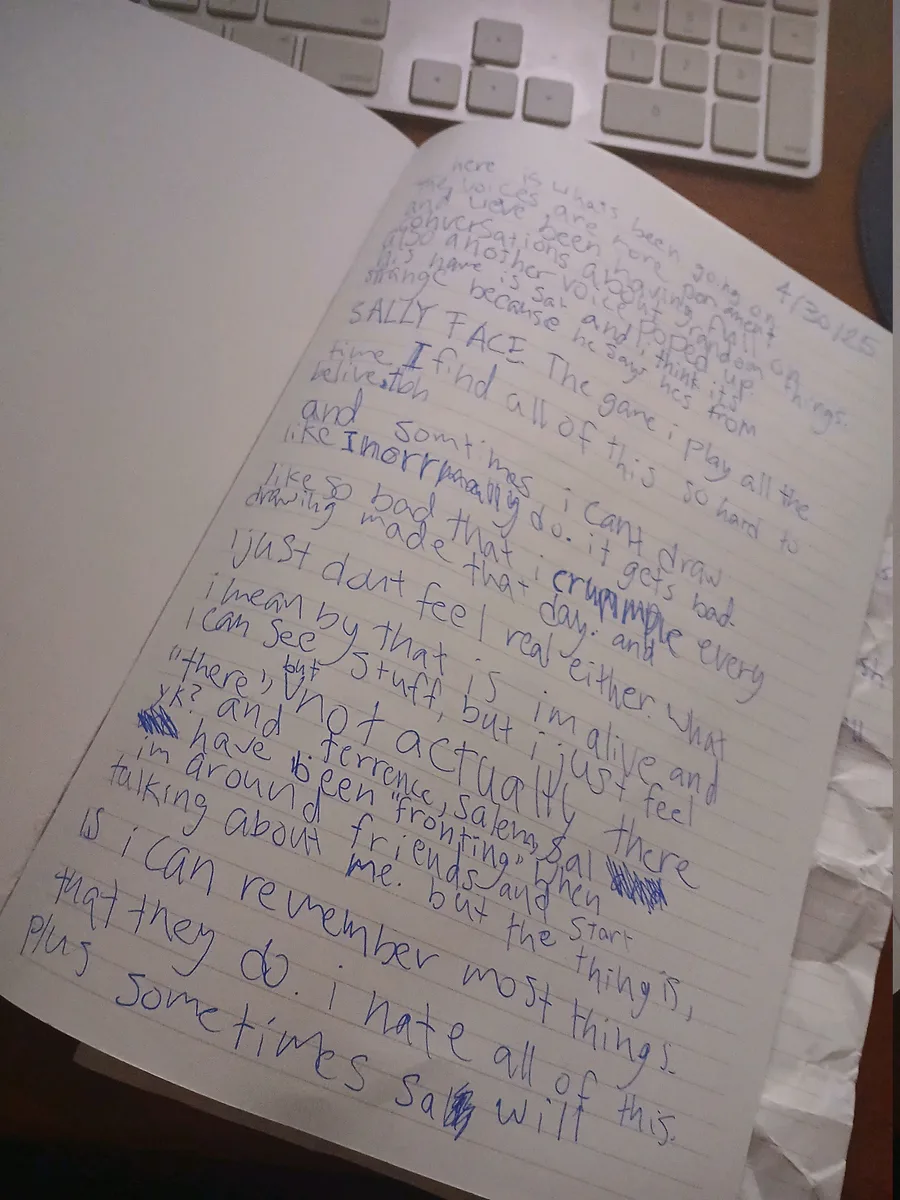 4/30/25
here is whats been going on
the voices are more perment
and weve been having full on
conversations about random things.
also another voice poped up.
his name is Sal and i think its
strange because he says hes from
SALLY FACE. The game i play all the
time. I find all of this so hard to
belive.tbh
and somtimes i cant draw
like I norrmaally do. it gets bad.
like so bad that i crummple every
drawing made that day. and
i just dont feel real either. what
i mean by that is im alive and
i can see stuff, but i just feel
"there", but not actually there
yk? and terrence, salem, Sal
have been "fronting" when
im around friends and start
talking about me. but the thing is,
is i can remember most things
that they do. i hate all of this.
Plus sometimes Sal will